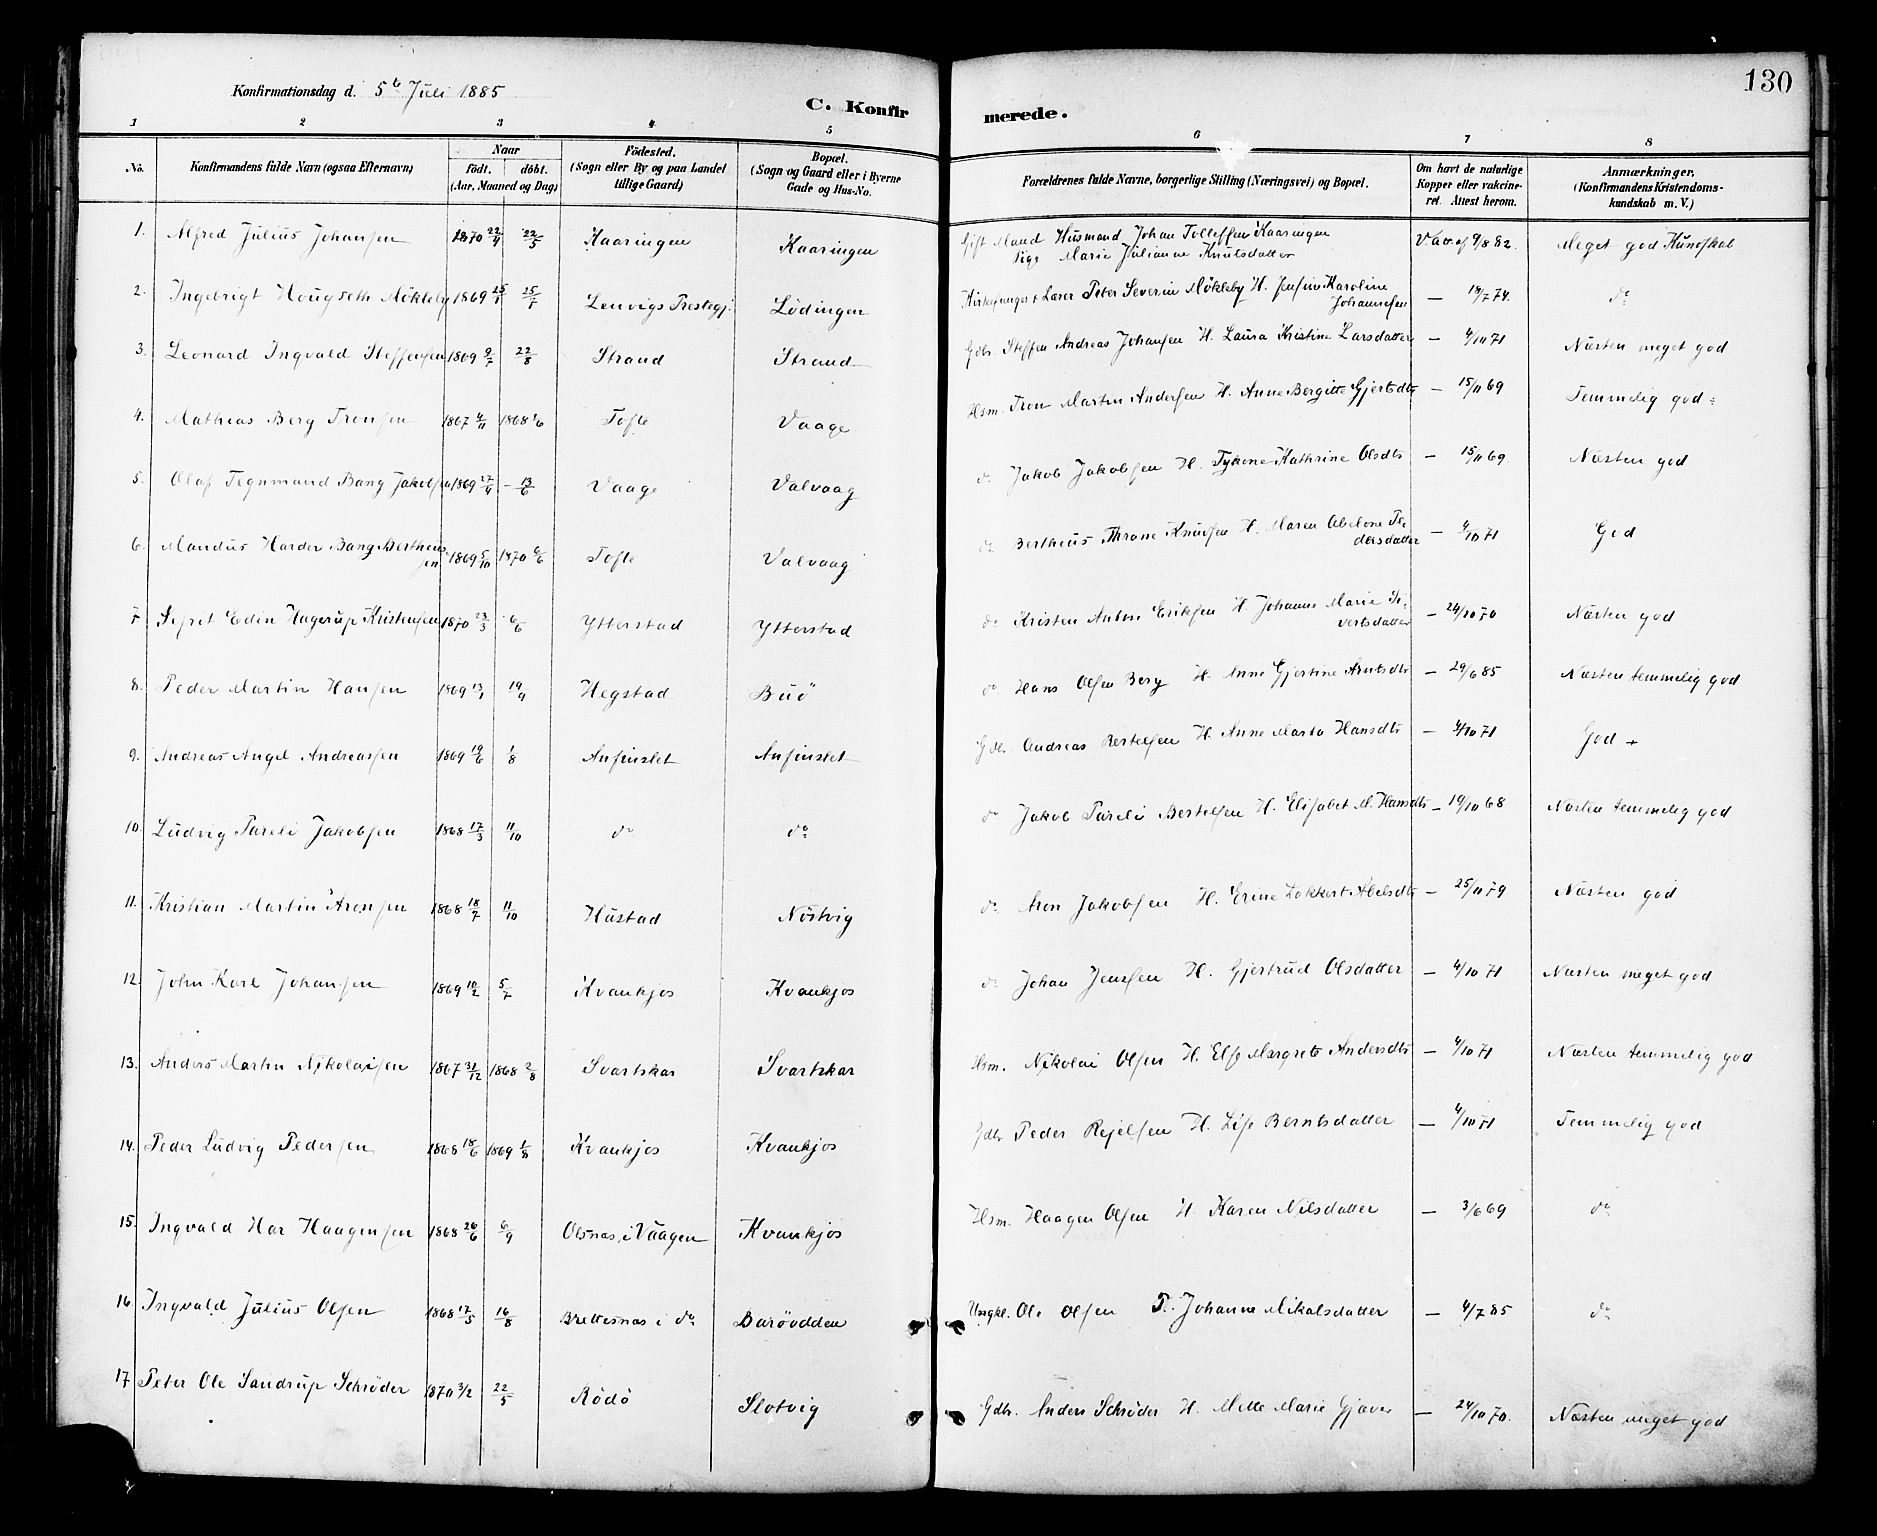 130
Konfirmationsdag d. 5te Juli 1885
C. Konfirmerede.
1 2 3 4 5 6 7 8
No. Konfirmandens fulde Navn (ogsaa Efternavn) Naar født. døbt. (Aar, Maaned og Dag) Födested. (Sogn eller By og paa Landet tillige Gaard) Bopæl. (Sogn og Gaard eller i Byerne Gade og Hus-No. Forældrenes fulde Navne, borgerlige Stilling (Næringsvei) og Bopæl. Om havt de naturlige Kopper eller vakcineret. Attest herom. Anmærkninger. (Konfirmandens Kristendomskundskab m. V.)
1. Alfred Julius Johansen 1870 22/4 22/5 Kaaringen Kaaringen Gift Mand Husmand Johan Tollefsen Kaaringen Pige Marie Julianne Knutsdatter Vacc. af 9/8 82. Meget god Kundskab
2. Ingebrigt Hougseth Mökleby 1869 25/1 25/5 Lenvigs Prestegj. Lödingen Kirkesanger & Lærer Peter Severin Mökleby H. Jensine Karoline Johannesen — 18/7 74. do
3. Leonard Ingvald Steffensen 1869 9/7 22/8 Strand Strand Gdbr. Steffen Andreas Johansen H. Laura Kristine Larsdatter — 4/10 71 Næsten meget god
4. Mathias Berg Tronsen 1867 4/11 1868 1/6 Tofte Vaage Hsm. Tron Martin Andersen H. Anne Bergitte Gjertsdtr — 15/11 69 Temmelig god
5. Olaf Tegnmand Bang Jakobsen 1869 27/4 – 13/6 Vaage Valvaag do Jakob Jakobsen H. Tykone Kathrine Olsdtr — 15/11 69 Næsten god
6. Mandus Harder Bang Bertheussen 1869 5/10 1870 6/6 Tofte Valvaag do Bertheus Throne Knutsen H. Maren Abelone Pedersdatter — 4/10 71 God
7. Sefrit Edin Hagerup Kristensen 1870 23/3 6/6 Ytterstad Ytterstad do Kristen Anton Eriksen H. Johanne Marie Sivertsdatter — 24/10 70 Næsten god
8. Peder Martin Hansen 1869 13/1 19/9 Hegstad Buö do Hans Olsen Berg H. Anne Gjertine Arntsdtr — 29/6 85 Næsten temmelig god
9. Andreas Angel Andreassen 1869 19/6 1/8 Anfinslet Anfinslet Gdbr. Andreas Bertelsen H. Anne Marta Hansdtr — 4/10 71 God +
10. Ludvig Pareli Jakobsen 1868 17/3 11/10 do do do Jakob Pareli Bertelsen H. Elisabet M. Hansdtr — 19/10 68 Næsten temmelig god
11. Kristian Martin Aronsen 1868 18/7 11/10 Hustad Nöstvig do Aron Jakobsen H. Erine Lokkert Abelsdtr — 25/11 79 Næsten god
12. John Karl Johansen 1869 10/2 5/7 Kvankjos Kvankjos do Johan Jensen H. Gjertrud Olsdatter — 4/10 71 Næsten meget god
13. Anders Martin Nikolaisen 1867 31/12 1868 2/8 Svartskar Svartskar Hsm. Nikolai Olsen H. Else Margrete Andersdtr — 4/10 71 Næsten temmelig god
14. Peder Ludvig Pedersen 1868 18/6 1869 1/8 Kvankjos Kvankjos Gdbr Peder Rejelsen H. Lise Berntsdatter — 4/10 71 Temmelig god
15. Ingvald Har Haagensen 1868 26/6 6/9 Olsnas i Vaagen Kvankjos Hsm. Haagen Olsen H. Karen Nilsdatter — 3/6 69 do
16. Ingvald Julius Olsen 1868 17/5 16/8 Brettesnas i do Baröodden Ungkl. Ole Olsen P. Johanne Mikalsdatter — 4/7 85 do
17 Peter Ole Sandrup Schrøder 1870 3/2 22/5 Rödö Slotvig Gdbr. Anders Schrøder H. Mette Marie Gjæver — 24/10 70. Næsten meget god